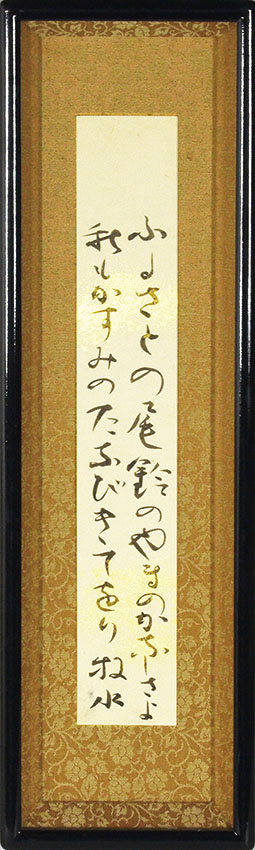 ふるさとの尾鈴のやまのかなしさよ
秋もかすみのたなびきてをり 牧水